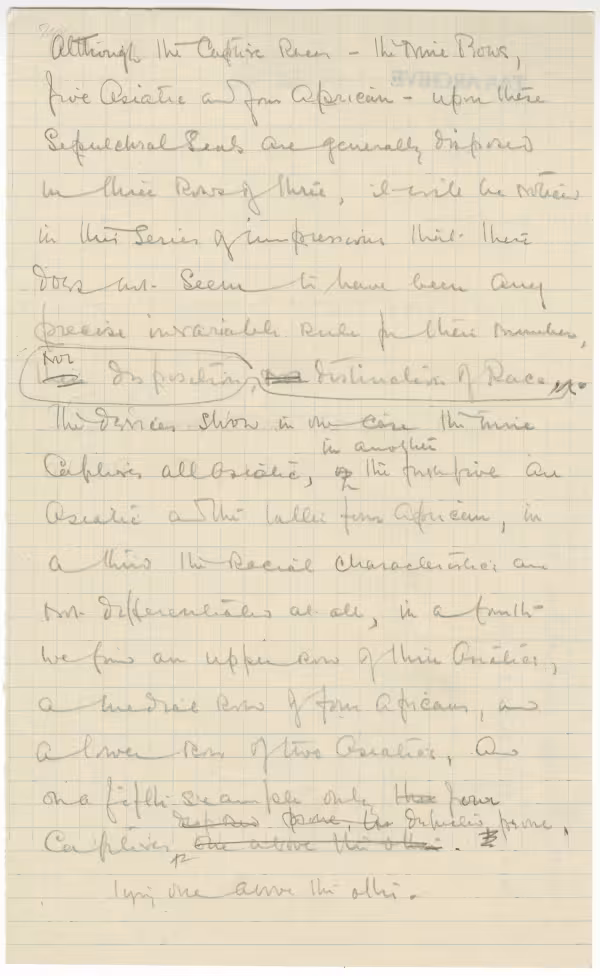 Although the Captive Races – the Nine Bows,
five Asiatic and four African – upon these
Sepulchral Seals are generally disposed
in three Rows of three, it will be noticed
in this Series of impressions that there
does not seem to have been any
precise invariable rule for their number,
nor disposition, distinction of Race,
The devices show in one case the nine
in another
Captives all Asiatic, the first five are
Asiatic and the latter four African, in
a third the Racial characteristics are
not differentiated at all, in a fourth
we find an upper row of three Asiatics,
a medial row of four Africans, and
a lower row of two Asiatics, and
on a fifth example only four
depicted prone,
Captives one above the other.
lying one above the other.